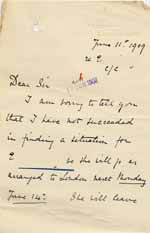 June 11th 1909
C/C
Dear Sir
I am sorry to tell you
that I have not succeeded
in finding a situation for
E so she will go as
arranged to London next Monday
June 14th. She will leave